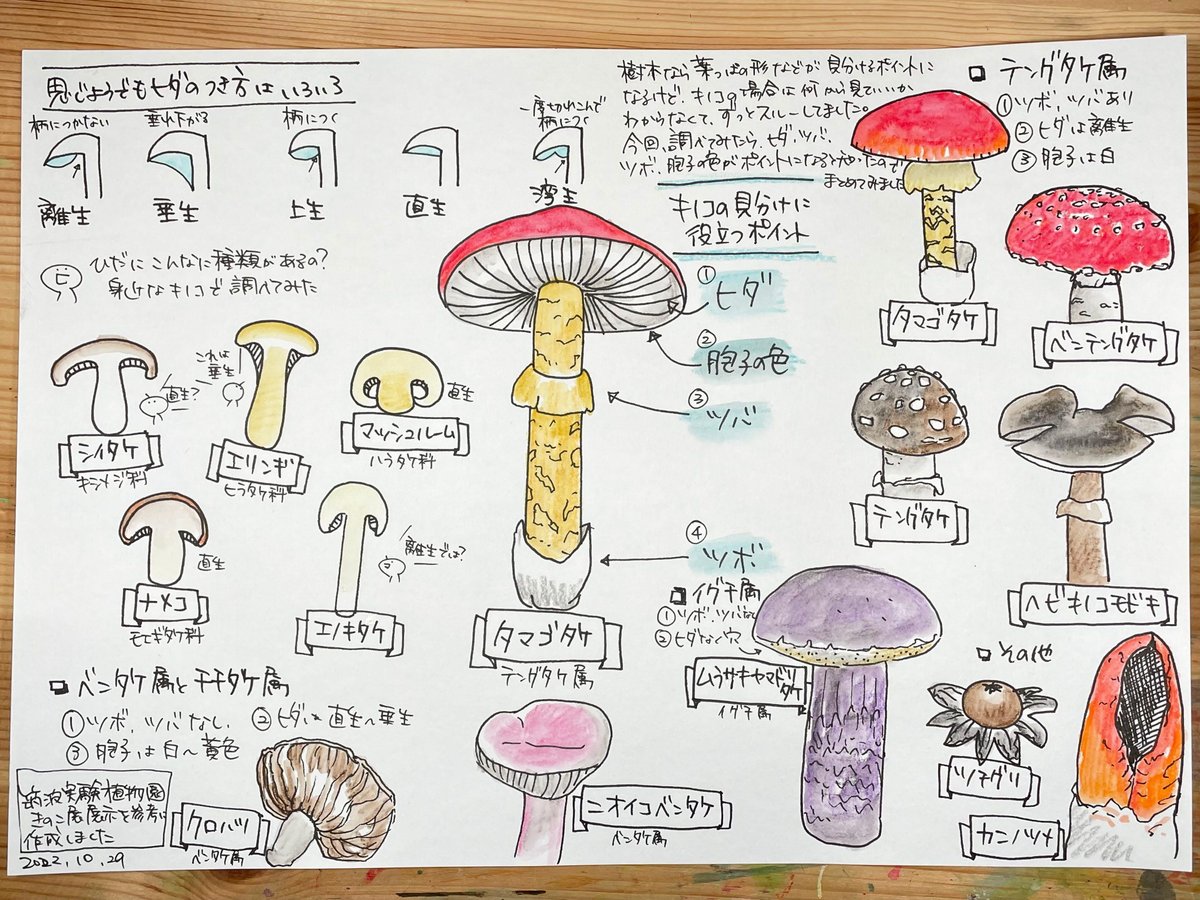 思じようでもヒダのつき方はいろいろ
柄につかない
垂れ下がる
柄につく
一度切れこんで
柄につく
離生
垂生
上生
直生
湾生
ひだにこんなに種類があるの?
身近なキノコで調べてみた
樹木なら葉っぱの形などが見分けるポイントに
なるけど、キノコの場合は何から見ていいか
わからなくて、ずっとスルーしてました。
今回、調べてみたら、ヒダ、ツバ、
ツボ、胞子の色がポイントになるとわかったので
まとめてみました
キノコの見分けに
役立つポイント
①
ヒダ
②
胞子の色
③
ツバ
④
ツボ
タマゴタケ
テングタケ属
直生?
シイタケ
キシメジ科
これは
垂生
エリンギ
ヒラタケ科
直生
マッシュルーム
ハラタケ科
直生
ナメコ
モエギタケ科
離生では?
エノキタケ
□ テングタケ属
①ツボ、ツバあり
②ヒダは離生
③胞子は白
タマゴタケ
ベニテングタケ
テングタケ
ヘビキノコモドキ
□ イグチ属
①ツボ、ツバなし
②ヒダなく穴
ムラサキヤマドリ
タケ
イグチ属
□ その他
ツチグリ
カニノツメ
□ ベニタケ属とチチタケ属
①ツボ、ツバなし、 ②ヒダは直生〜垂生
③胞子は白〜黄色
クロハツ
ベニタケ属
ニオイコベニタケ
ベニタケ属
筑波実験植物園
きのこ展展示を参考に
作成しました
2022.10.29